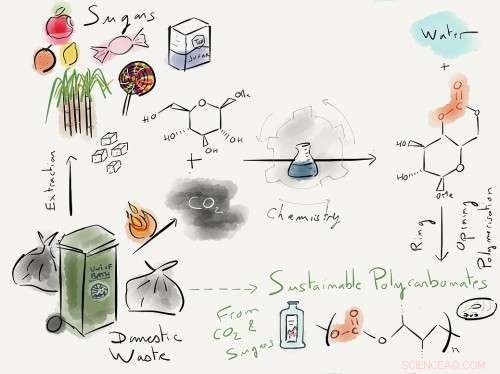 Sugars
Water
SUGAR
+
O
O
O
OMe
HO
O
HO
HO
OH
+
HO
HO
O
OMe
CO2
Chemistry
Extraction
Ring
Opening
Polymerisation
Uni of
BATH
Domestic
Waste
Sustainable Polycarbonates
From
CO2 &
Sugars
O
O
O
n
SCIENCEAQ.COM